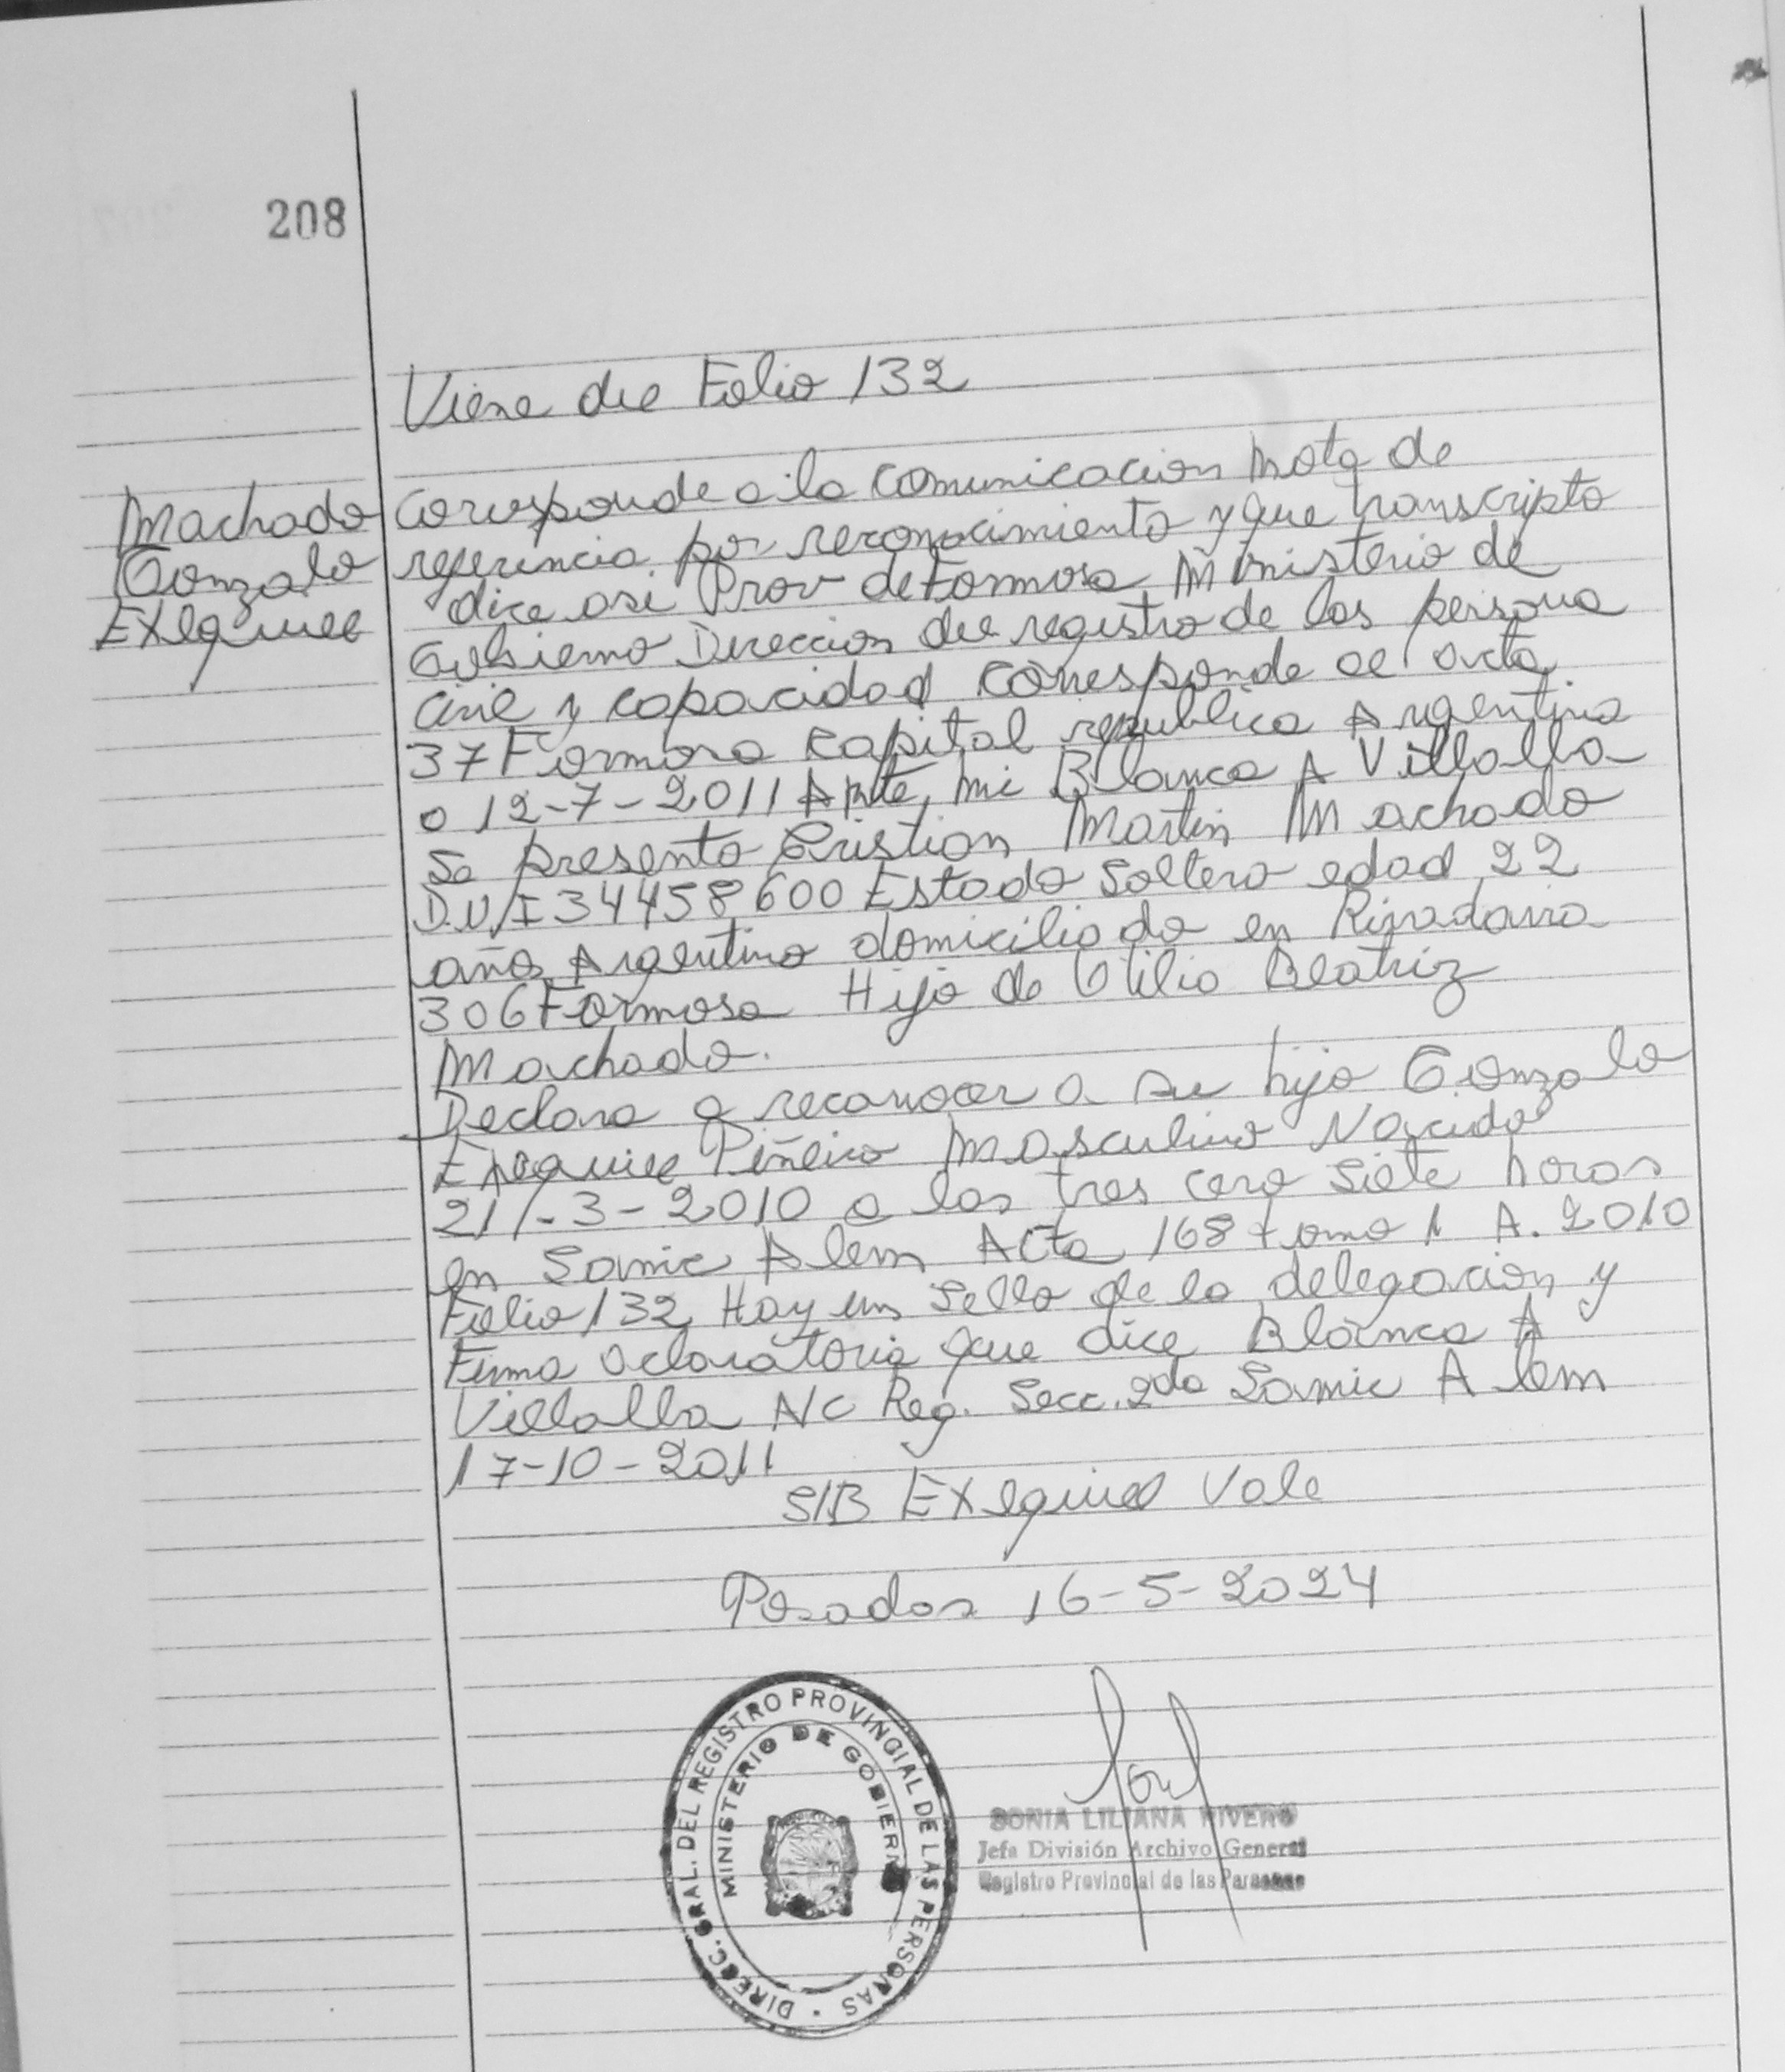 208
Viene de Folio 132
Machado
Gonzalo
Exequiel
Corresponde a la comunicacion Nota de
referencia por reconocimiento y que transcripto
dice asi Prov de Formosa Ministerio de
Gobierno Direccion de registro de las persona
Civil y capacidad Corresponde al acta
37 Formosa Capital republica Argentina
a 12-7-2011 Ante mi Blanca A Villalba
Se presento Cristian Martin Machado
D.N.I 34458600 Estado Soltero edad 22
años Argentino domiciliado en Rivadavia
306 Formosa Hijo de Otilia Beatriz
Machado.
Declara a reconocer a su hijo Gonzalo
Piñeiro Masculino Nacido
21-3-2010 a las tres cero siete horas
en Samic Alem Acta 168 tomo 1 A. 2010
Folio 132 Hay un sello de la delegacion y
Firma aclaratoria que dice Blanca A
Villalba Reg. Secc. 2da Samic Alem
17-10-2011
S/B Exequiel Vale
Posadas 16-5-2024
DIRECC. GRAL. DEL REGISTRO PROVINCIAL DE LAS PERSONAS
MINISTERIO DE GOBIERNO
SONIA LILIANA RIVERO
Jefa División Archivo General
Registro Provincial de las Personas